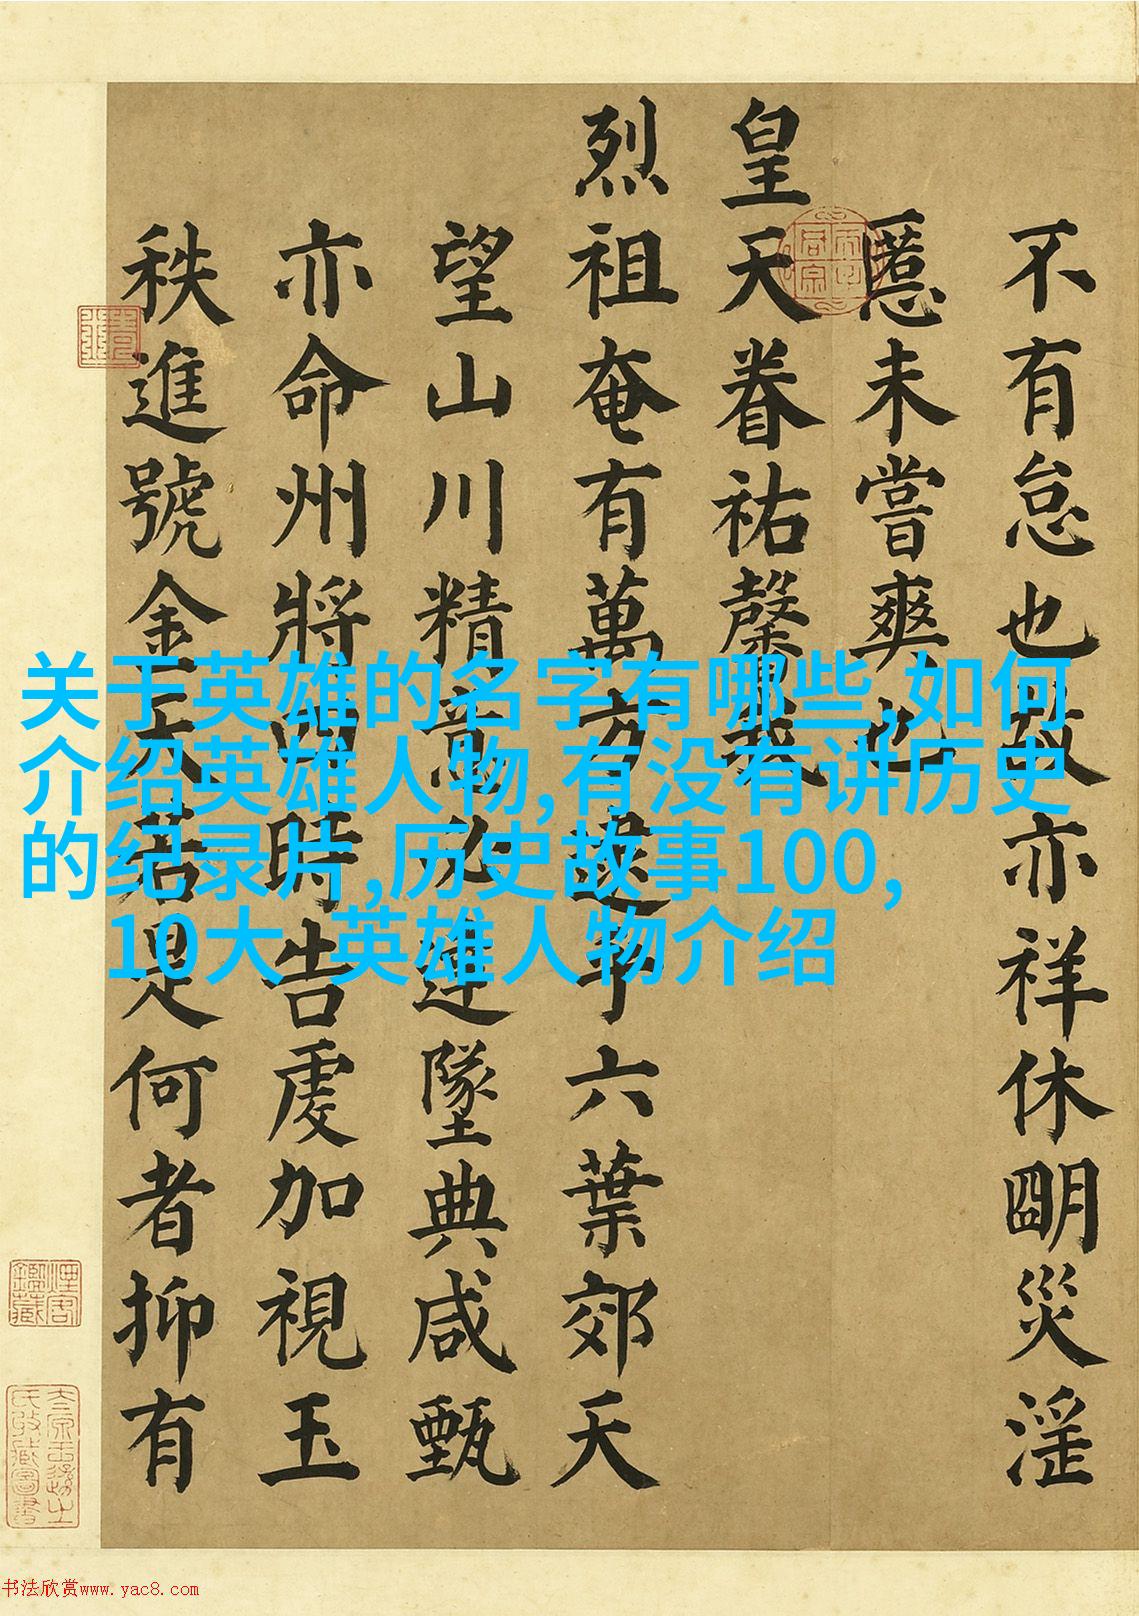 不有怠也故亦祥休朙災淫
慝未嘗爽也
皇天眷祐馨義
烈祖奄有萬方逮乎六葉郊天
望山川精意以達墜典咸甄
亦命州將四時告虔加視玉
秩進號金天若是何者抑有
关于英雄的名字有哪些,如何
介绍英雄人物,有没有讲历史
的纪录片,历史故事100,
10大 英雄人物介绍
书法欣赏www.yac8.com